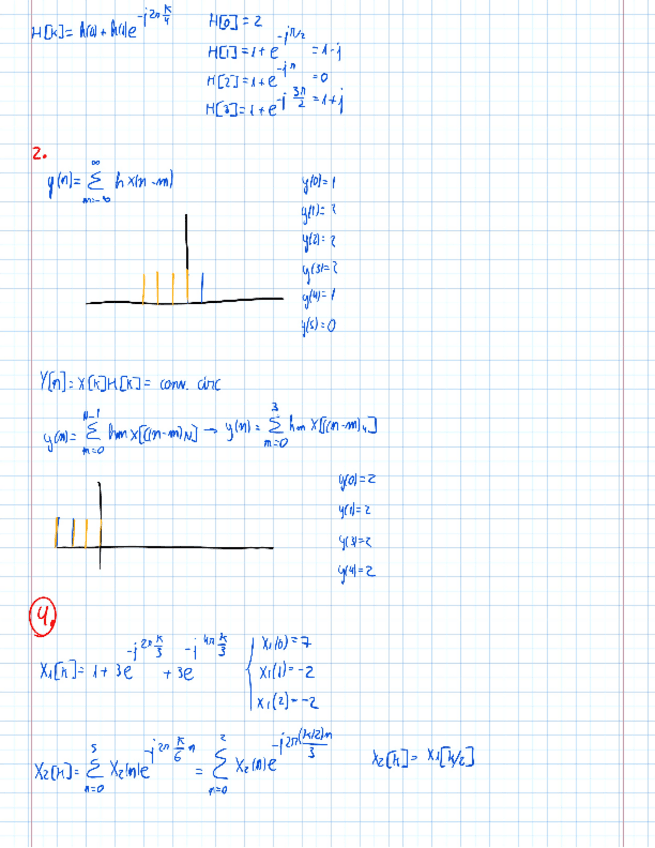 H[k] = h(0) + h(1)e^{-j2π k/4}
H[0] = 2
H[1] = 1 + e^{-jπ/2} = 1-j
H[2] = 1 + e^{-jπ} = 0
H[3] = 1 + e^{-j 3π/2} = 1+j
2.
y(n) = ∑_{m=-∞}^{∞} h x(n-m)
y(0) = 1
y(1) = 2
y(2) = 2
y(3) = 2
y(4) = 1
y(5) = 0
Y[n] = X[k]H[k] = conv. circ
y(n) = ∑_{m=0}^{N-1} h(m) x[((n-m))_N] → y(n) = ∑_{m=0}^{3} h(m) x[((n-m))_4]
y(0) = 2
y(1) = 2
y(3) = 2
y(4) = 2
4.
X1[k] = 1 + 3e^{-j2π k/3} + 3e^{-j4π k/3}
X1(0) = 7
X1(1) = -2
X1(2) = -2
X2[k] = ∑_{n=0}^{5} X2(n)e^{-j2π k/6 n} = ∑_{n=0}^{2} X2(n)e^{-j2π(k/2)n/3}
X2[k] = X1[k/2]